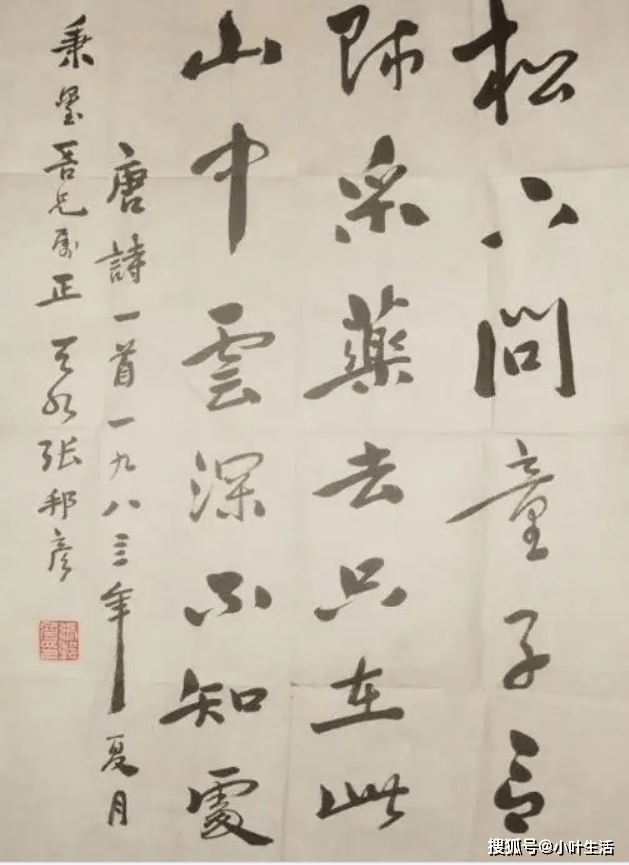 松下問童子言
師采藥去只在此
山中雲深不知處
唐詩一首一九八三年夏月
秉璽吾兄属正 天水张邦彦
搜狐号@小叶生活